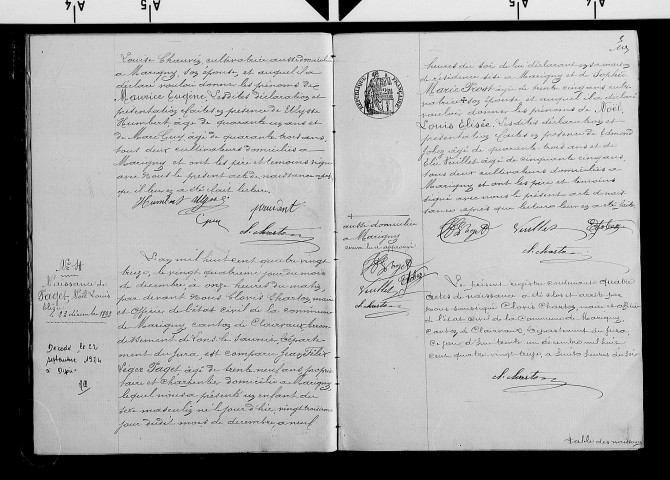 Louise Chauvin, cultivatrice aussi domiciliée
à Marigny, son épouse, et auquel il a
déclaré vouloir donner les prénoms de
Maurice Eugène. Lesdites déclaration et
présentation faites en présence de Elysée
Humbert âgé de quarante six ans et
de Marc Guy âgé de quarante trois ans,
tous deux cultivateurs domiciliés à
Marigny et ont les père et témoins signé
avec nous le présent acte de naissance après
qu'il leur en a été fait lecture
Humbert
Guy
C. Charton
N° 4
Naissance de
Paget, Noël Louis
Elisée
23 décembre 1893
Décédé le 22
septembre 1974
à Dijon
L'an mil huit cent quatre vingt
treize, le vingt quatrième jour du mois
de décembre à onze heures du matin,
par devant nous Clovis Charton, maire
et officier de l'état civil de la commune
de Marigny canton de Clairvaux, arron-
dissement de Lons le Saunier, départe-
ment du Jura, est comparu
Paget âgé de trente neuf ans, proprié-
taire et Charpentier domicilié à Marigny,
lequel nous a présenté un enfant du
sexe masculin né le jour d'hier, vingt troisième
jour dudit mois de décembre à neuf
3
RÉPUBLIQUE FRANÇAISE
heures du soir de lui déclarant en sa maison
de résidence sise à Marigny et de Sophie
Marie Prost âgée de trente cinq ans
son épouse et auquel il a déclaré
vouloir donner les prénoms de Noël
Louis Elisée. Lesdites déclaration et
présentation faites en présence de Edmond
Jobez âgé de quarante trois ans et de
Elie Vuillet âgé de cinquante cinq ans,
tous deux cultivateurs domiciliés à
Marigny et ont les père et témoins
signé avec nous le présent acte de nais-
sance après que lecture leur en a été faite
Paget
Vuillet
Jobez
C. Charton
aussi domiciliée
à Marigny
Paget
Vuillet
Jobez
C. Charton
Le présent registre contenant quatre
actes de naissance a été clos et arrêté par
nous soussigné Clovis Charton, maire et officier
de l'état civil de la Commune de Marigny,
canton de Clairvaux, département du Jura,
ce jour d'hui trente un décembre mil huit
cent quatre vingt treize, à huit heures du soir
C. Charton
Table des naissances